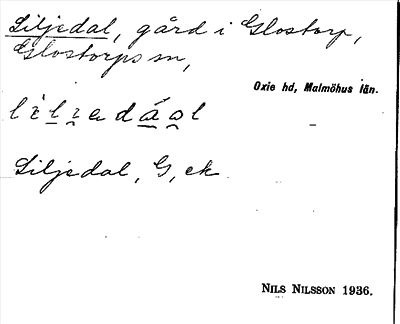 Liljedal, gård i Glostorp,
Glostorps sn,
Oxie hd, Malmöhus län.
Liljedal, G, ek
NILS NILSSON 1936.